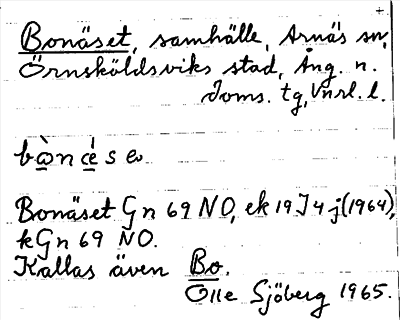 +
Bonäset, samhälle, Arnäs sn,
Örnsköldsviks stad, Ång. n.
Doms. tg, Vnrl. l.
Bonäset Gn 69 NO, ek 19 J 4 j (1964),
kGn 69 NO.
Kallas även Bo.
Olle Sjöberg 1965.